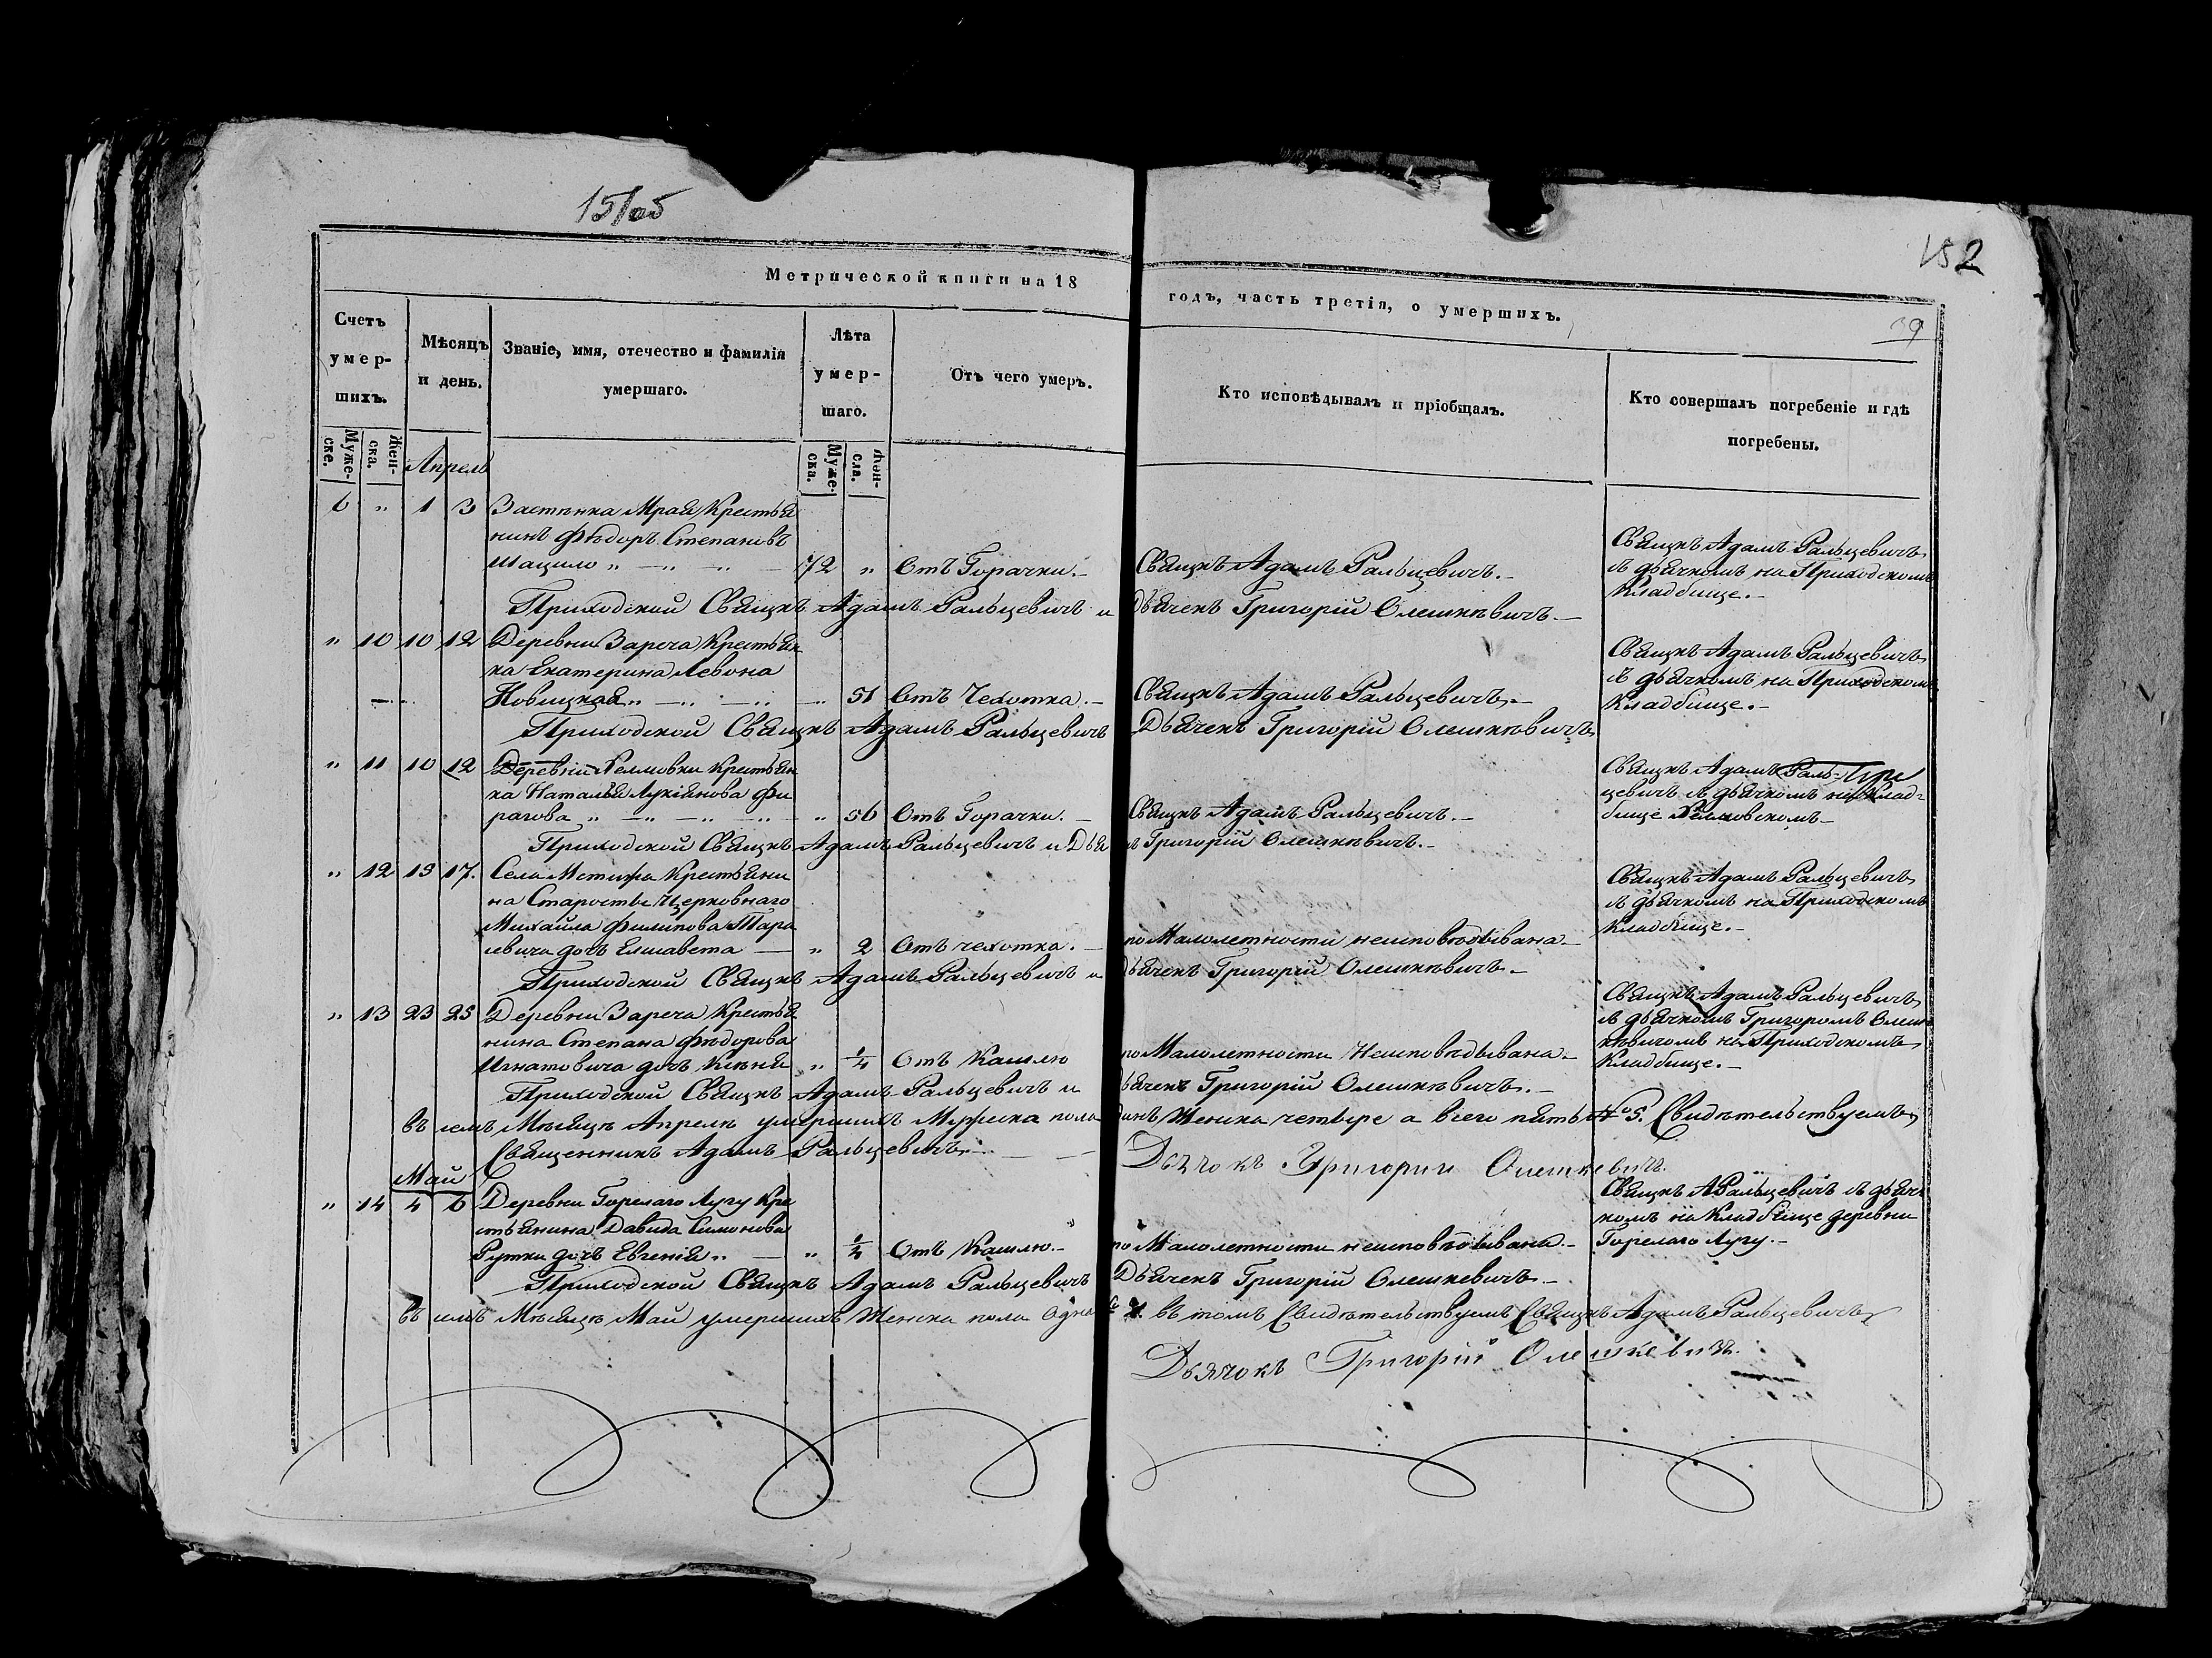 151об
152
39
Метрической книги на 18
годъ, часть третія, о умершихъ.
Счетъ умер-шихъ.
Мѣсяцъ и день.
Званіе, имя, отечество и фамилія умершаго.
Лѣта умер-шаго.
Отъ чего умеръ.
Кто исповѣдывалъ и пріобщалъ.
Кто совершалъ погребеніе и гдѣ погребены.
Муже-ске.
Жен-ска.
Муже-ска.
Жен-ска.
Апрель
6 „ 1 3 Застѣнка Мрая Крестья
нинъ Фѣдоръ Степановъ
Шацило „ — „ — „ — 72 „ Отъ Горачки. — Свящнъ Адамъ Ральцевичъ. —
Свящнъ Адамъ Ральцевичъ
съ дьячкомъ на Приходскомъ
Кладбище. —
Приходской Свящнъ Адамъ Ральцевичъ и Дьячекъ Григорій Олешкѣвичъ. —
„ 10 10 12 Деревни Зареча Крестьян
ка Екатерина Левона
Новицкая „ — „ — „ — „ 51 Отъ Чехотка. — Свящнъ Адамъ Ральцевичъ. —
Свящнъ Адамъ Ральцевичъ
съ дьячкомъ на Приходскомъ
Кладбище. —
Приходской Свящнъ Адамъ Ральцевичъ Дьячекъ Григорій Олешкѣвичъ
„ 11 10 12 Деревни Крестьян
ка Наталья Лукіянова Фи
рагова „ — „ — „ — „ 56 Отъ Горачки. — Свящнъ Адамъ Ральцевичъ. —
Свящнъ Адамъ Раль-
цевичъ съ дьячкомъ на Клад-
бище
Приходской Свящнъ Адамъ Ральцевичъ и Дья ъ Григорій Олешкѣвичъ. —
„ 12 13 17. Села Мстижа Крестьяни
на Старосты Церковнаго
Михайла Филипова Тара
севича дочь Елисавета — „ 2 Отъ чехотка. — по Малолетности неисповѣдывана —
Свящнъ Адамъ Ральцевичъ
съ дьячкомъ на Приходскомъ
Кладбище. —
Приходской Свящнъ Адамъ Ральцевичъ и Дьячекъ Григорій Олешкѣвичъ —
„ 13 23 25 Деревни Зареча Крестья
нина Степана Фѣдорова
Игнатовича дочь Ксѣня „ 1/4 Отъ Кашлю по Малолетности Неисповѣдывана —
Свящнъ Адамъ Ральцевичъ
съ дьячкомъ Григоромъ Олеш
кѣвичомъ на Приходскомъ
Кладбище. —
Приходской Свящнъ Адамъ Ральцевичъ и ьячекъ Григорій Олешкѣвичъ. —
въ семъ Мѣсяцѣ Апрелѣ умершихъ Мужска пола динъ Женска четыре а всего пять № 5. Свидѣтельствуемъ
Священникъ Адамъ Ральцевичъ —
Дьячокъ Григорій Олешкевичъ.
Май
„ 14 4 6 Деревни Горелаго Лугу Кре
стьянина Давида Симонова
Рутки дочь Евгенія „ — „ 1/4 Отъ Кашлю. — по Малолетности неисповѣдывана. —
Свящнъ А Ральцевичъ съ дьяч
комъ на Кладбище деревни
Горелаго Лугу. —
Приходской Свящнъ Адамъ Ральцевичъ Дьячекъ Григорій Олешкевичъ —
въ семъ Мѣсяцѣ Май умершихъ Женска пола одна № 1. въ томъ Свидѣтельствуемъ Свящнъ Адамъ Ральцевичъ
Дьячокъ Григорій Олешкевичъ.